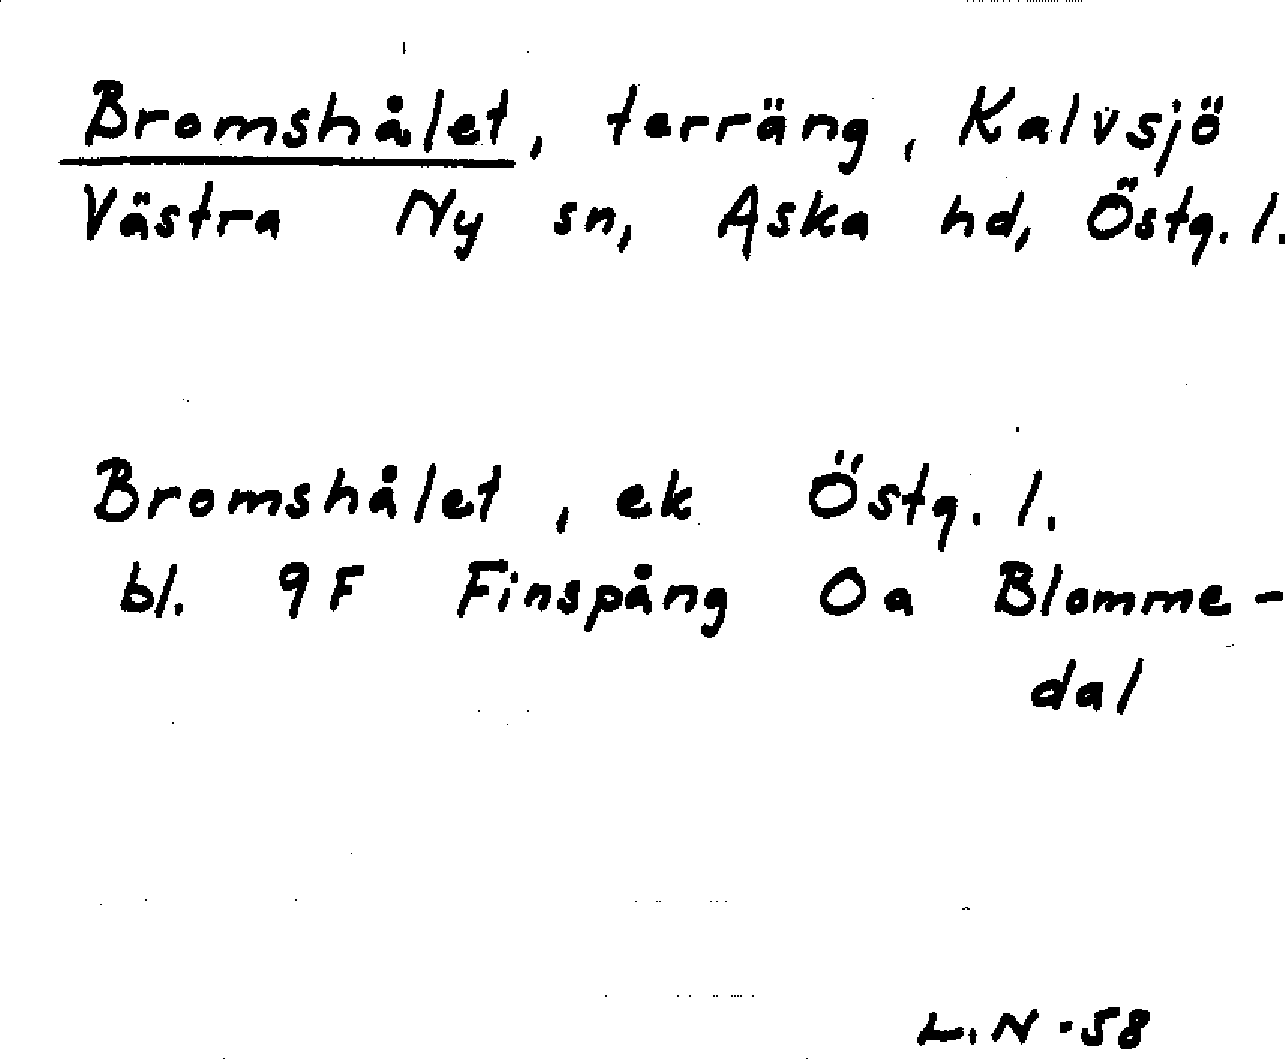 Bromshålet, terräng, Kalvsjö
Västra Ny sn, Aska hd, Östg. l.
Bromshålet, ek Östg. l.
bl. 9F Finspång 0a Blomme-
dal
L. N -58